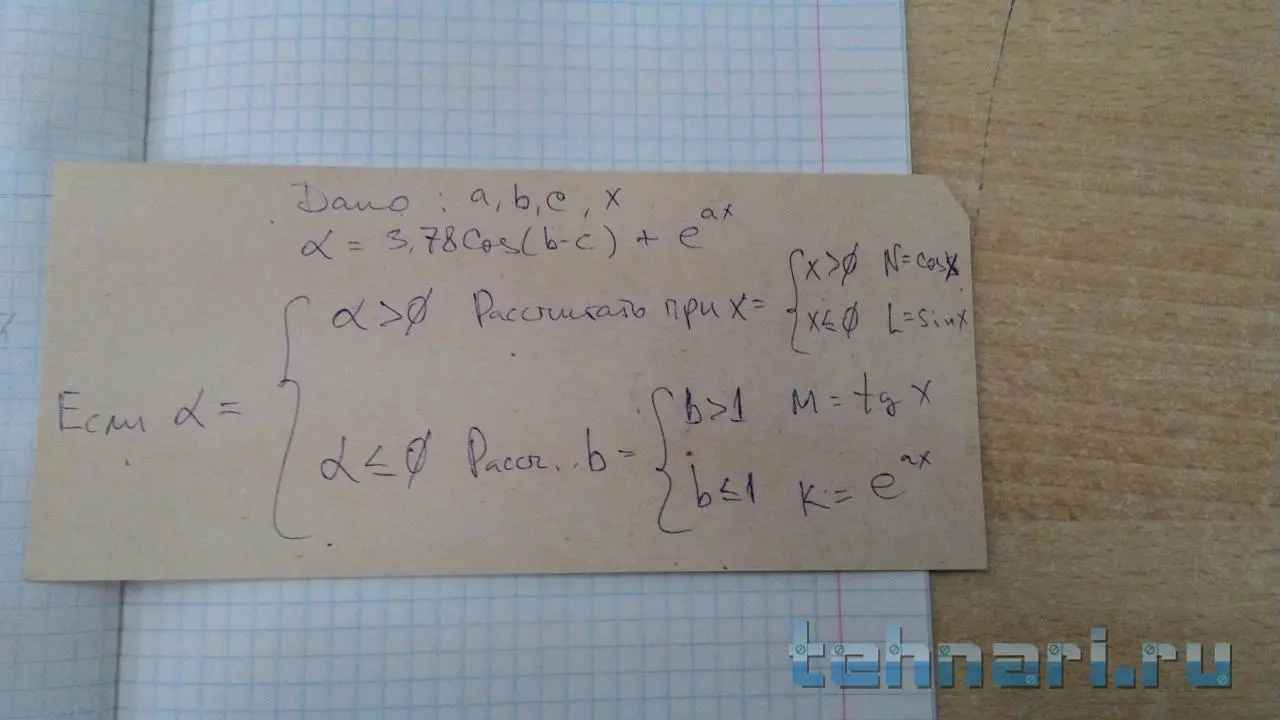 Дано: a, b, c, x
α = 3,78cos(b-c) + e^ax
Если α =
α>0 Рассчитать при x=
x>0 N=cosx
x≤0 L=sinx
α≤0 Рассч. b=
b>1 M=tg x
b≤1 K=e^ax
tehnari.ru